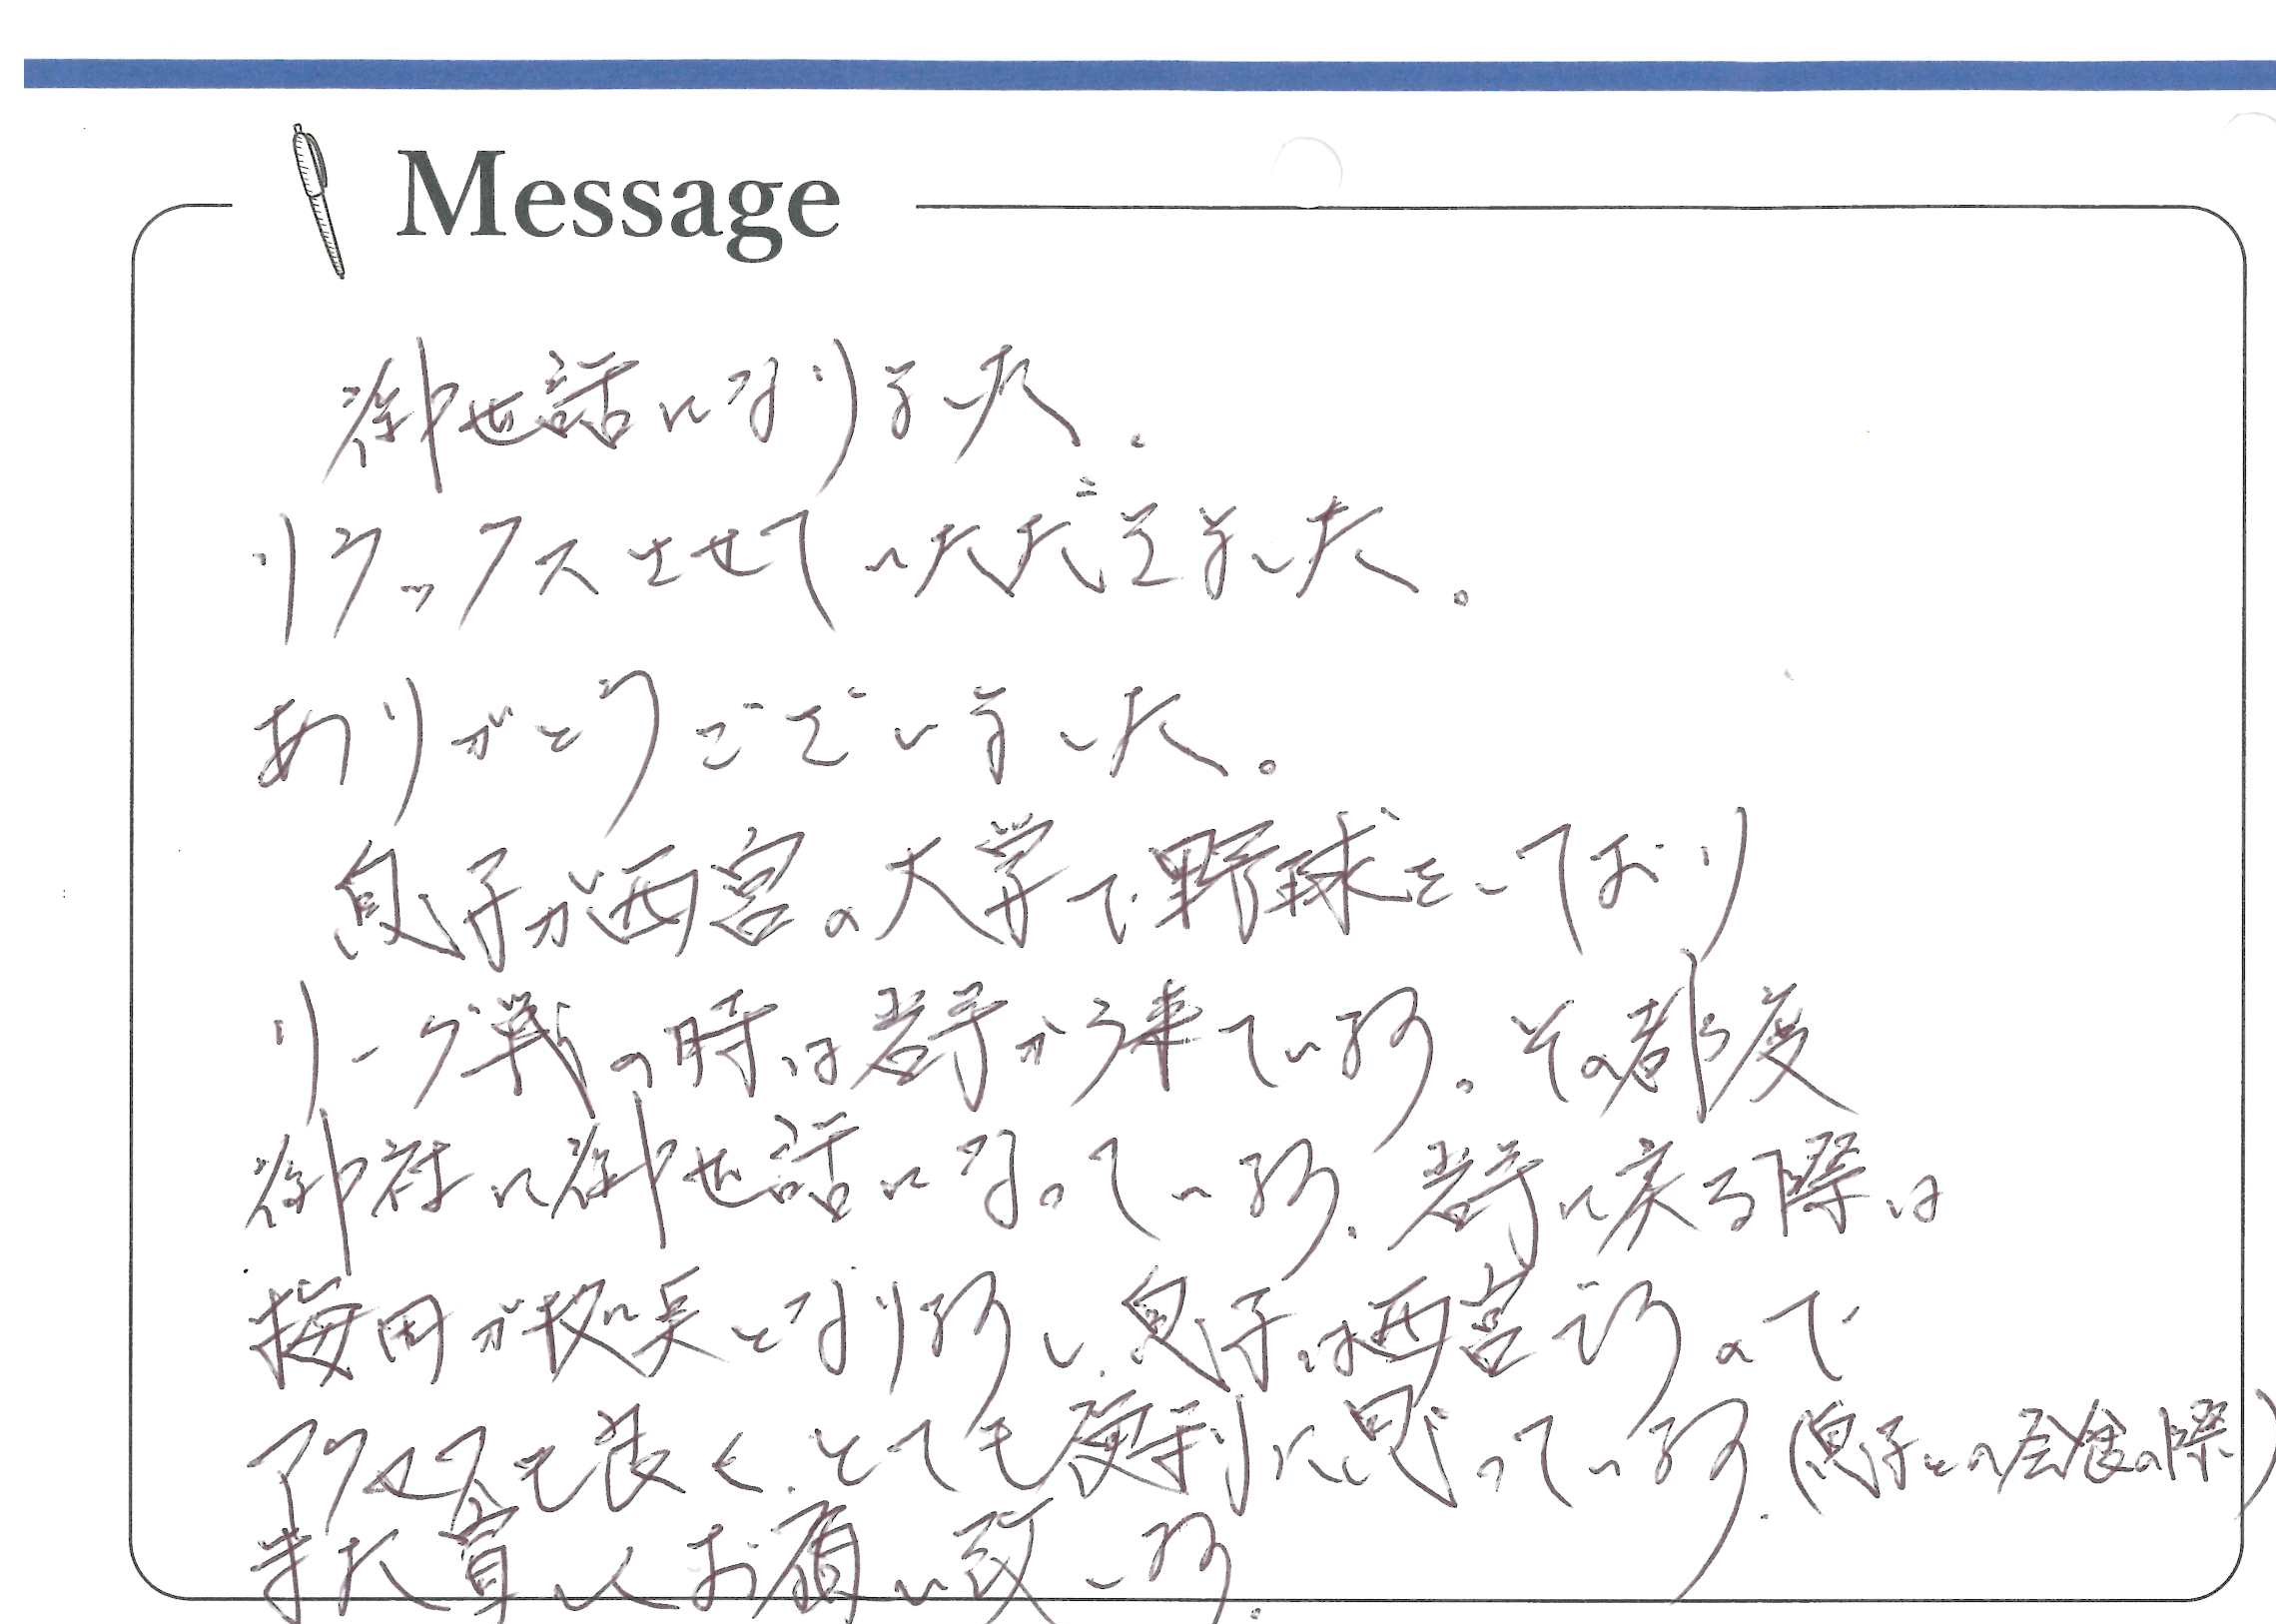 Message
御世話になりました。
リラックスさせていただきました。
ありがとうございました。
息子が西宮の大学で野球をしており
リーグ戦の時は岩手から来ています。その都度
御社に御世話になっています。岩手に戻る際は
梅田が拠点となりますし、息子は西宮ですので
アクセスも良く、とても便利に思っています。(息子との会食の際)
また宜しくお願い致します。